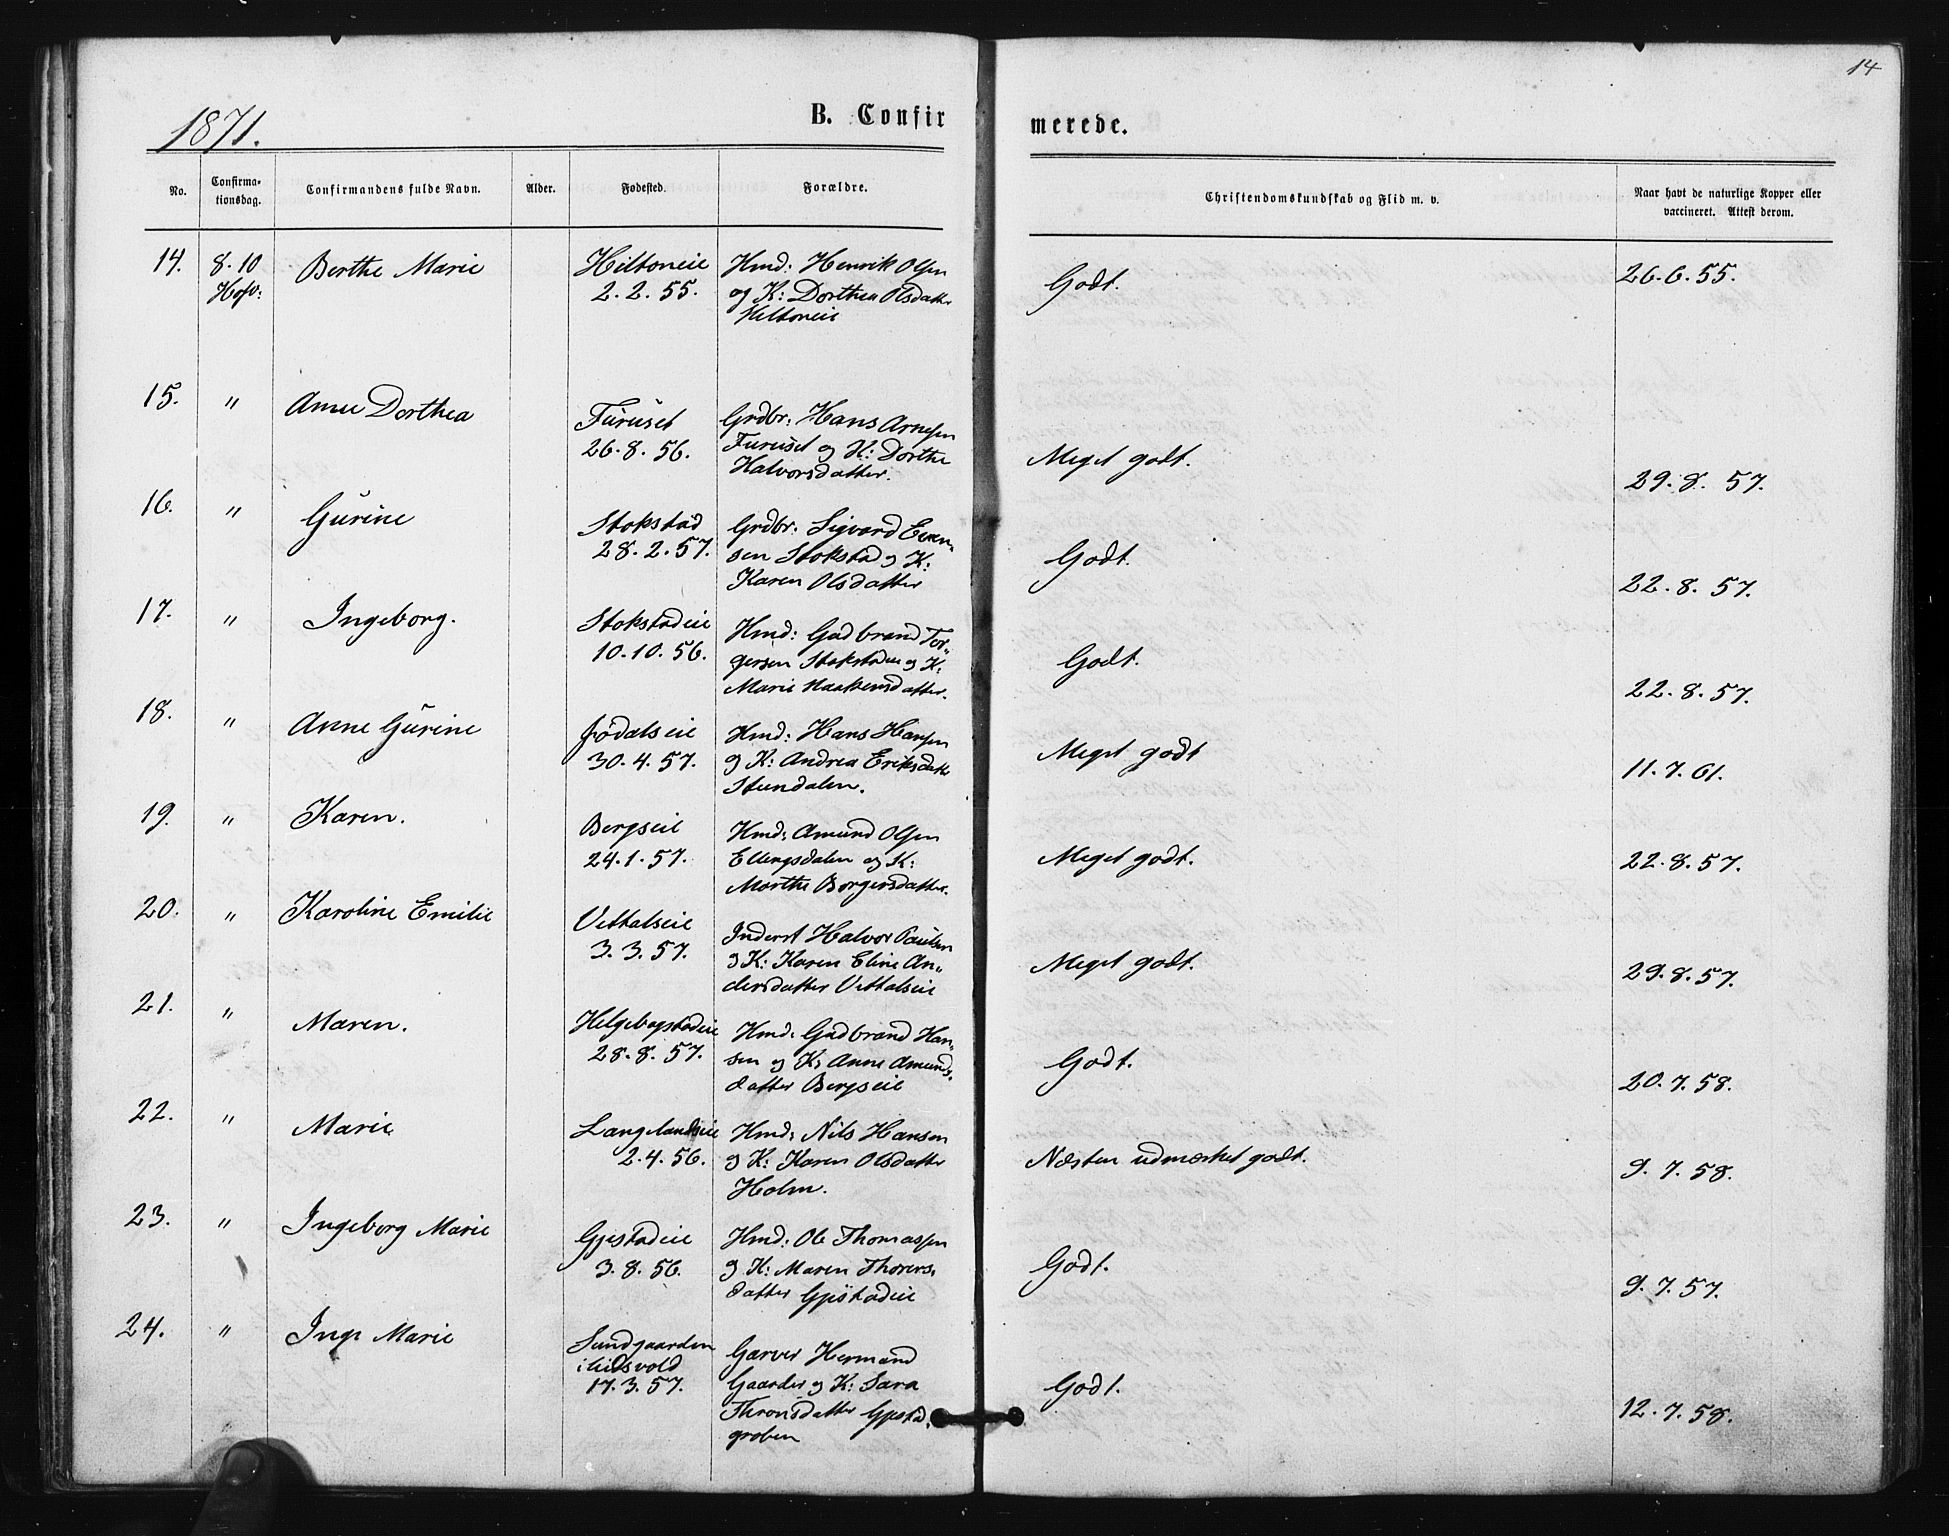 14
1871.
B. Confir
merede.
No.
Confirma-
tionsdag.
Confirmandens fulde Navn.
Alder.
Fødested.
Forældre.
Christendomskundskab og Flid m. v.
Naar havt de naturlige Kopper eller
vaccineret. Attest derom.
14. 8.10 Berthe Marie Hiltoneie Hmd: Henrik Olsen
Hofv: 2.2.55. og K: Dorthea Olsdatter
Hiltoneie
Godt.
26.6.55.
15. " Anne Dorthea Furuset Grdbr: Hans Arnesen
26.8.56. Furuset og K: Dorthe
Halvorsdatter.
Meget godt.
29.8.57.
16. " Gurine Stokstad Grdbr. Sigvard Even-
28.2.57. sen Stokstad og K:
Karen Olsdatter
Godt.
22.8.57.
17. " Ingeborg. Stokstadeie Hmd: Gudbrand Tor-
10.10.56. gersen Stokstadeie og K:
Marie Haakensdatter.
Godt.
22.8.57.
18. " Anne Gurine Jødalseie Hmd: Hans Hansen
30.4.57. og K: Andrea Eriksdatter
Stundalen.
Meget godt
11.7.61.
19. " Karen. Bergseie Hmd: Amund Olsen
24.1.57. Ellingsdalen og K:
Marthe Borgersdatter.
Meget godt.
22.8.57.
20. " Karoline Emilie Vettalseie Inderst Halvor Paulsen
3.3.57. og K: Karen Eline An-
dersdatter Vettalseie
Meget godt.
29.8.57.
21. " Maren. Helgebostadeie Hmd: Gudbrand Han-
28.8.57. sen og K: Anne Amunds-
datter Bergseie
Godt.
20.7.58.
22. " Marie Langelandseie Hmd: Nils Hansen
2.4.56. og K: Karen Olsdatter
Holm.
Næsten udmærket godt.
9.7.58.
23. " Ingeborg Marie Gjestadeie Hmd: Ole Thomassen
3.8.56. og K: Maren Thorers-
datter Gjestadeie
Godt.
9.7.57.
24. " Inge Marie Sundgaarden Garver Hermand
i Eidsvold Gaarder og K: Sara
17.3.57. Thronsdatter Gjestad-
groben
Godt.
12.7.58.